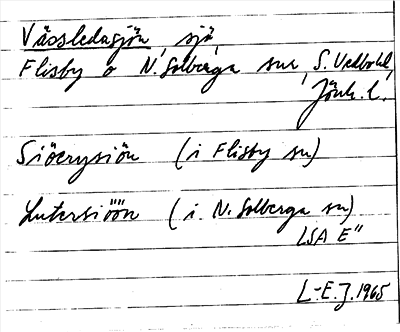 Vässledasjön, sjö,
Flisby o N. Solberga snr, S. Vedbohd,
Jönk. l.
Siöerysiön (i Flisby sn)
Lutersiöön (i N. Solberga sn)
LSA E"
L-E. J. 1965